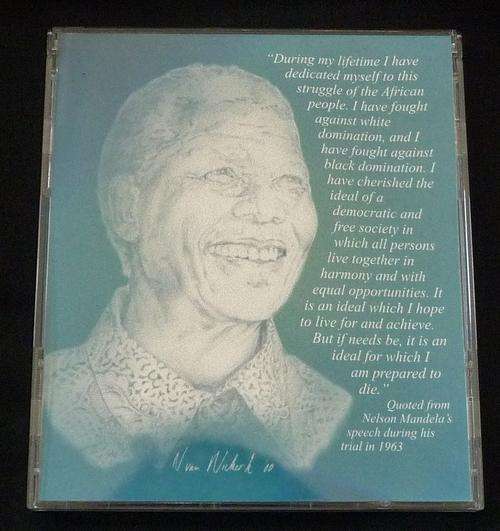 "During my lifetime I have
dedicated myself to this
struggle of the African
people. I have fought
against white
domination, and I
have fought against
black domination. I
have cherished the
ideal of a
democratic and
free society in
which all persons
live together in
harmony and with
equal opportunities. It
is an ideal which I hope
to live for and achieve.
But if needs be, it is an
ideal for which I
am prepared to
die."
Quoted from
Nelson Mandela's
speech during his
trial in 1963
N van Niekerk